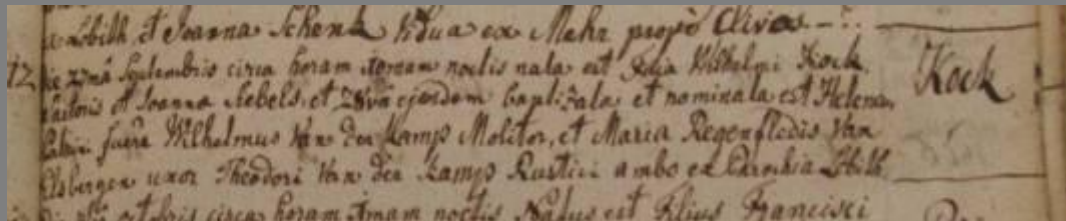 Lobith, et Joanna Schenk Vidua ex Mehr propè Clivos
12 27mâ Septembris circa horam noctis nata est Filia Wilhelmi Kock Kock
et Joanna Sebels, et ejusdem baptizata et nominata est Helena,
fuêre Wilhelmus Van der Kamp Molitor, et Maria Regenfledis Van
Elsbergen uxor Theodori Van der Kamp Rustici ambo ex Parochia Lobith
octobris circa horam noctis Natus est Filius Francisci